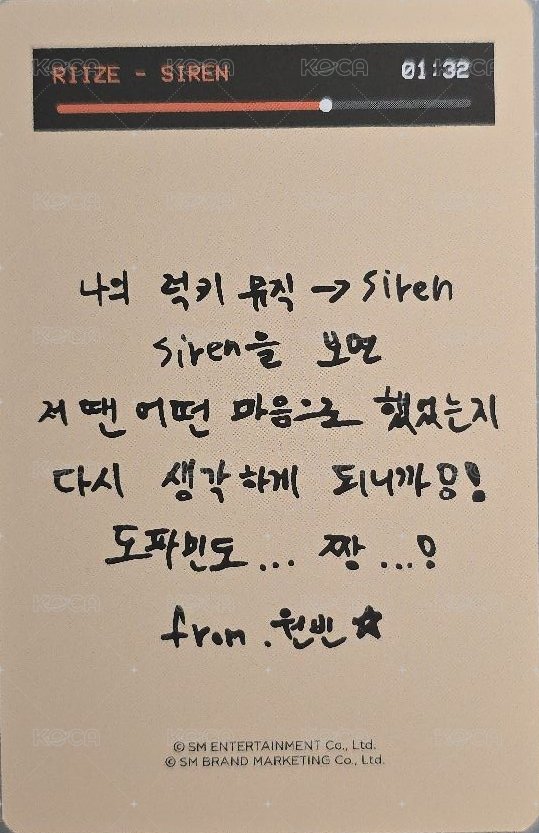 RIIZE - SIREN 01:32
나의 럭키 뮤직 → siren
siren을 보면
저 땐 어떤 마음으로 했었는지
다시 생각하게 되니까요!
도파민도... 짱...!
from. 원빈☆
© SM ENTERTAINMENT Co., Ltd.
© SM BRAND MARKETING Co., Ltd.
KOCA